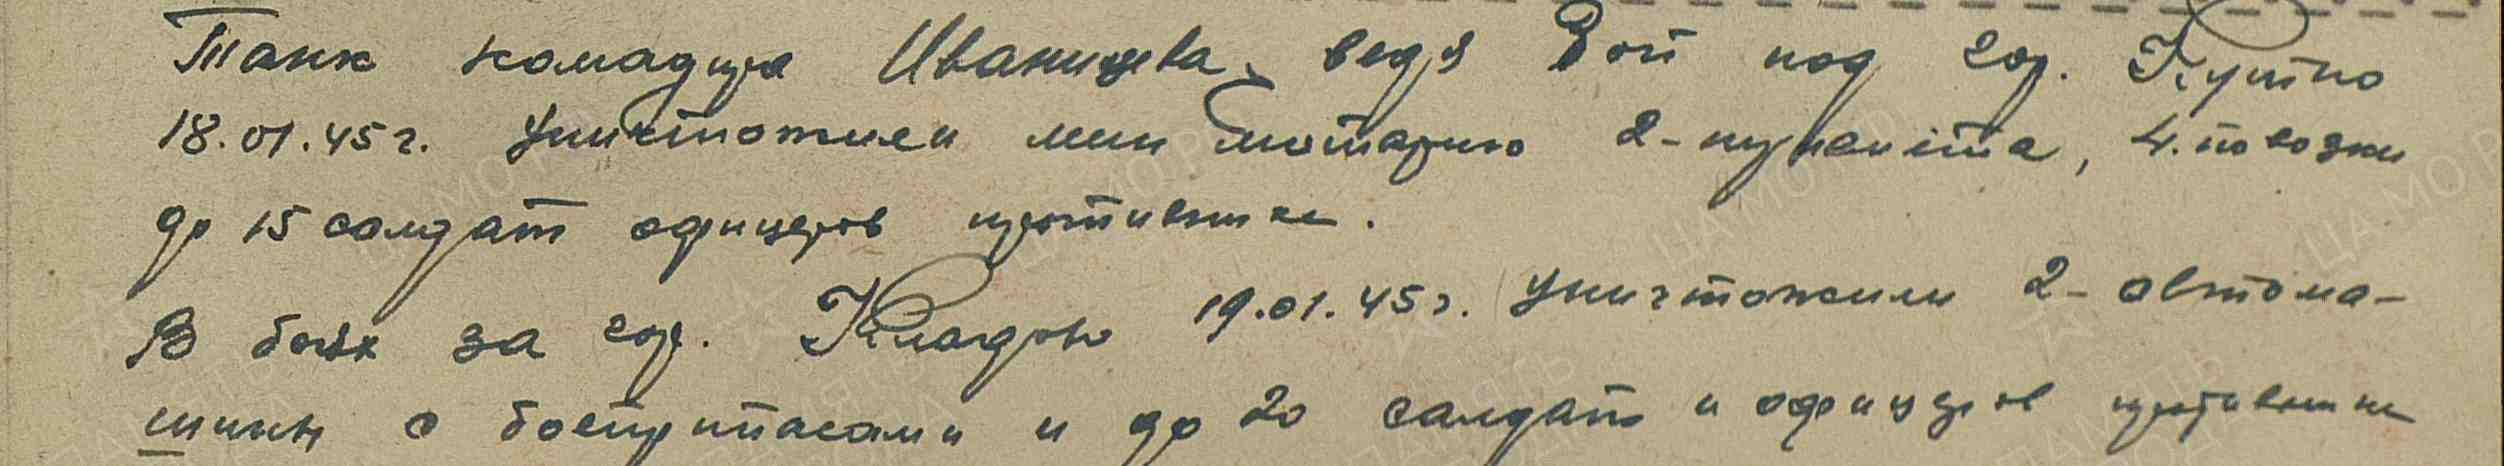 Танк командира Иванищева, ведя бой под гор. Кутно
18.01.45 г. уничтожили мин батарею 2-пулемета, 4. повозки
до 15 солдат офицеров противника.
В боях за гор. Клодаво 19.01.45 г. уничтожили 2-автома-
шины с боеприпасами и до 20 солдат и офицеров противника